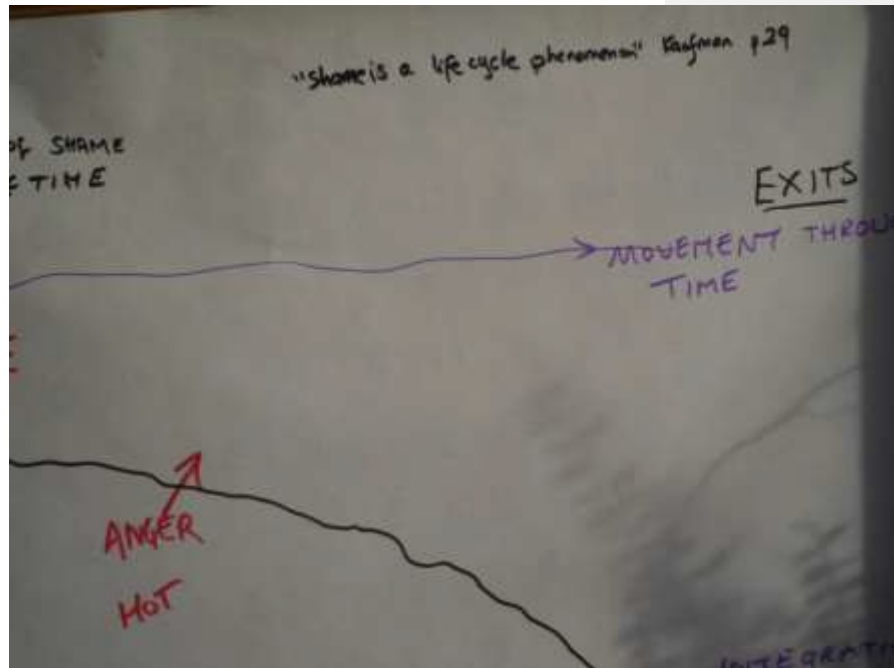 "shame is a life cycle phenomenon" Kaufman p29
OF SHAME
TIME
EXITS
MOVEMENT THROU
TIME
E
ANGER
HOT
INTEGRATI